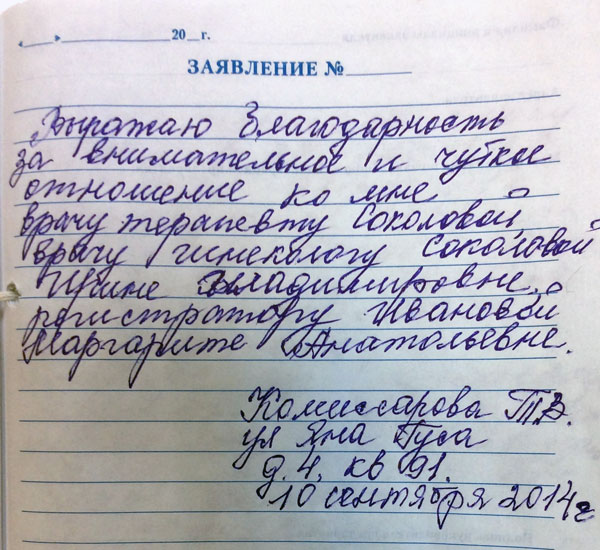 «____»____________20__г.
ЗАЯВЛЕНИЕ №______
Выражаю благодарность
за внимательное и чуткое
отношение ко мне
врачу терапевту Соколовой,
врачу гинекологу Соколовой
Ирине Владимировне,
регистратору Ивановой
Маргарите Анатольевне.
Комиссарова Т.В.
ул Яна Гуса
д. 4, кв 91.
10 сентября 2014 г